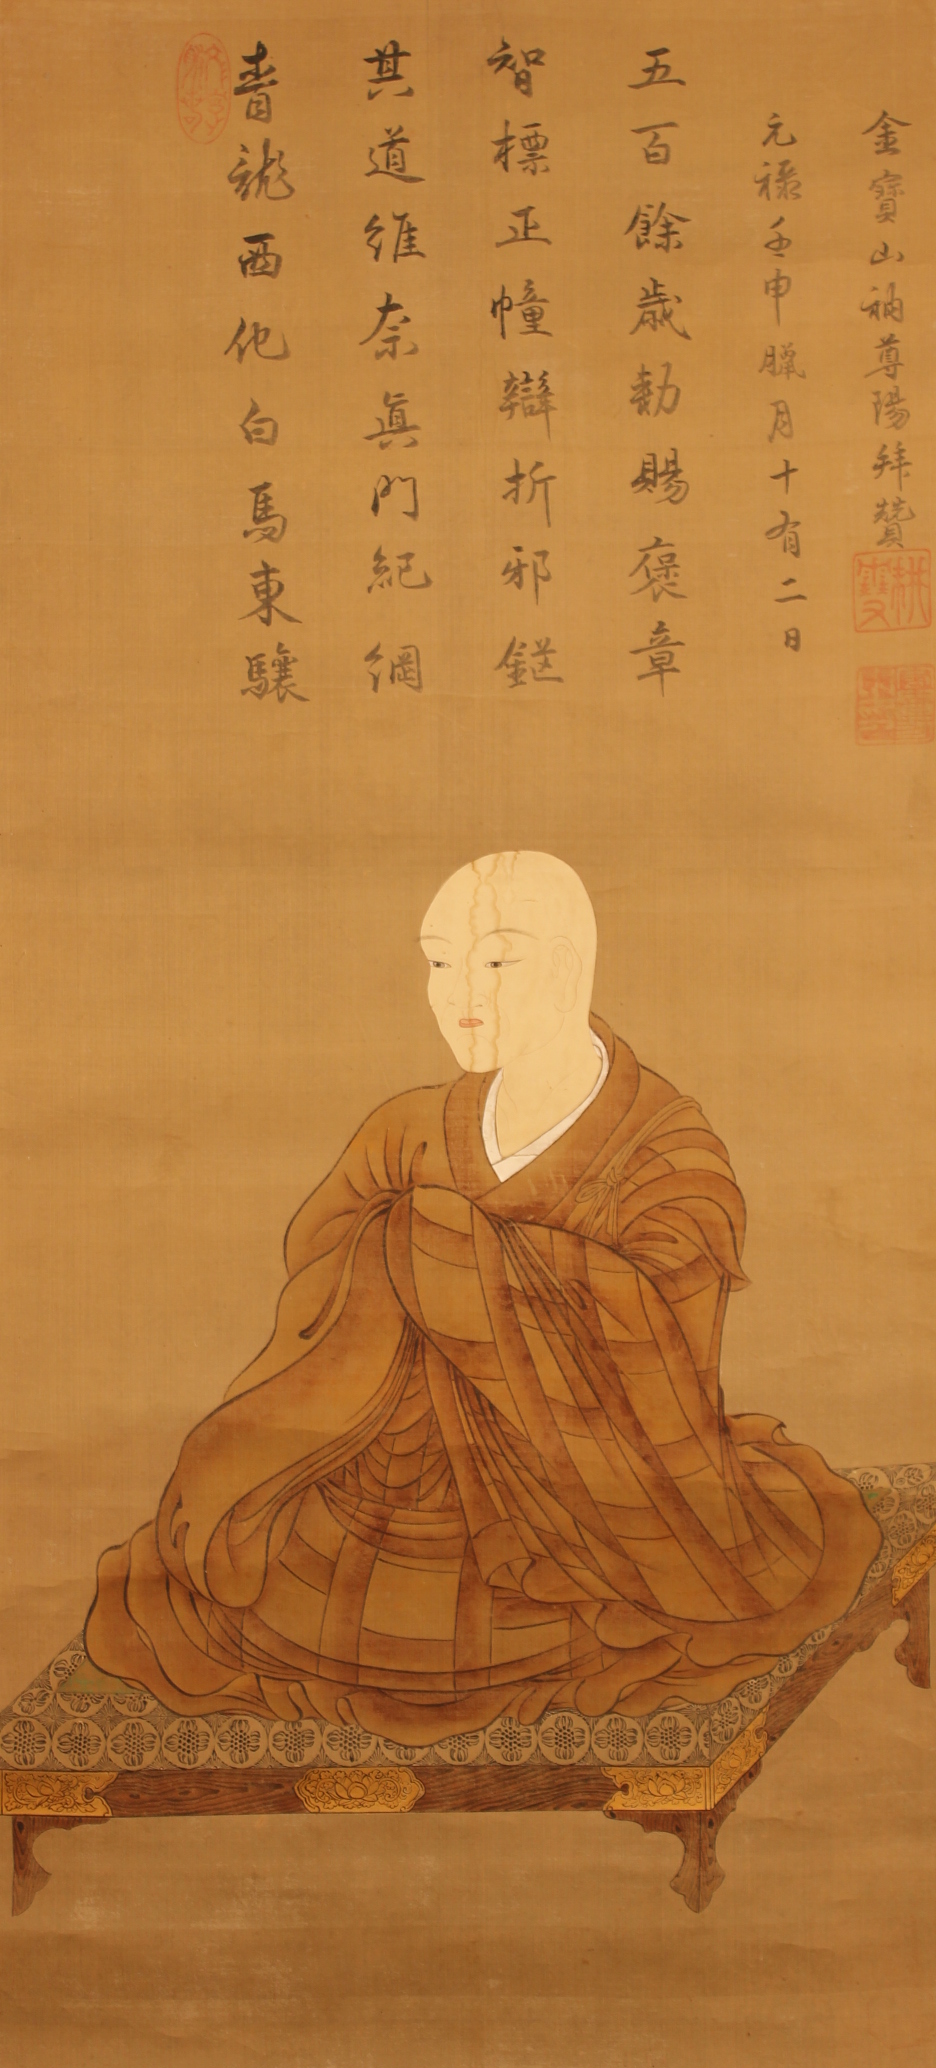 青龍西他白馬東驤
其道維奈眞門紀綱
智標正幢辯折邪鋩
五百餘歳勅賜褒章
元祿壬申臘月十有二日
金寶山衲尊陽拜贊